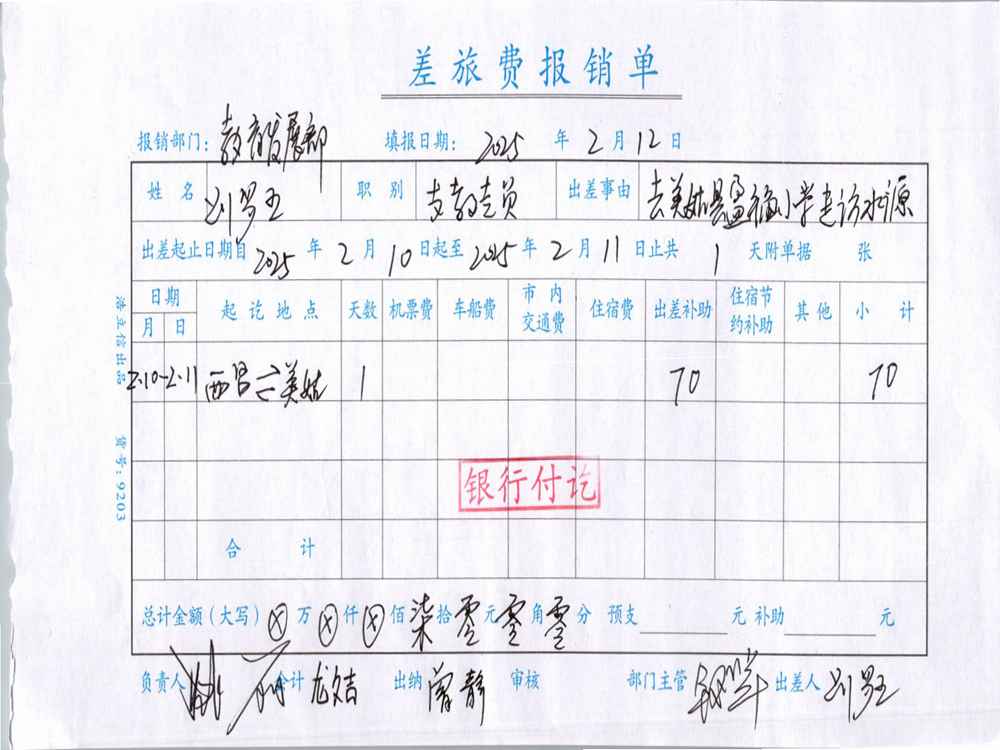 差旅费报销单
报销部门：教育发展部 填报日期：2025 年 2 月 12 日
姓名 刘罗王 职别 支教专员 出差事由 去美姑县盈福小学走访水源
出差起止日期自 2025 年 2 月 10 日起至 2025 年 2 月 11 日止共 1 天附单据 张
日期 起讫地点 天数 机票费 车船费 市内交通费 住宿费 出差补助 住宿节约补助 其他 小计
月 日
2.10-2.11 西昌⇌美姑 1 70 70
银行付讫
合计
总计金额(大写) ⊗ 万 ⊗ 仟 ⊗ 佰 柒 拾 零 元 零 角 零 分 预支 元 补助 元
负责人 会计 龙吉 出纳 曾静 审核 部门主管 出差人 刘罗王
浩立信出品 货号：9203